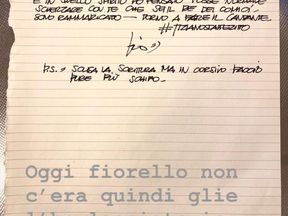 E IN QUELLO SPIRITO HO PENSATO FOSSE NORMALE
SCHERZARE CON TE CHE SEI IL RE DEI COMICI.
SONO RAMMARICATO — TORNO A FARE IL CANTANTE.
#TIZIANOSTAIZITTO
P.S. SCUSA LA SCRITTURA MA IN CORSIVO FACCIO
PURE PIÙ SCHIFO.
Oggi fiorello non
c'era quindi glie